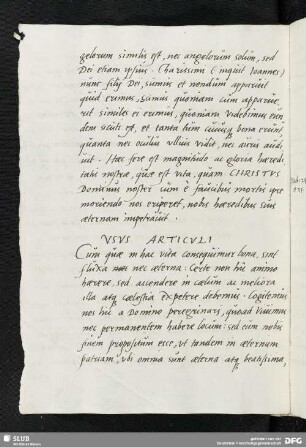 gelorum similis est, nec angelorum solum, sed
Dei etiam ipsius. Charissimi (inquit Joannes)
nunc filij Dei sumus et nondum apparuit
quid erimus, scimus quoniam cum apparue-
rit similes ei erimus, quoniam videbimus eun-
dem sicuti est, et tanta tum cuncta bona erunt
quanta nec oculus ullius vidit, nec auris audi-
uit. Haec fere est magnitudo ac gloria haeredi-
tatis nostrae, quae est vita, quam CHRISTVS
Dominus noster cum è faucibus mortis ipse
moriendo nos eriperet, nobis haeredibus suis
aeternam impetrauit.
VSVS ARTICVLI
Cum quae in hac vita consequimur bona, sint
fluxa nec aeterna: Certe non hic animo
haerere, sed ascendere in caelum ac meliora
illa atq caelestia expetere debemus. Cogitemus
nos hic a Domino peregrinari, quoad viuimus
nec permanentem habere locum: sed eum nobis
finem propositum esse, ut tandem in aeternam
patriam, vbi omnia sunt aeterna atq beatissima,
SLUB
DFG